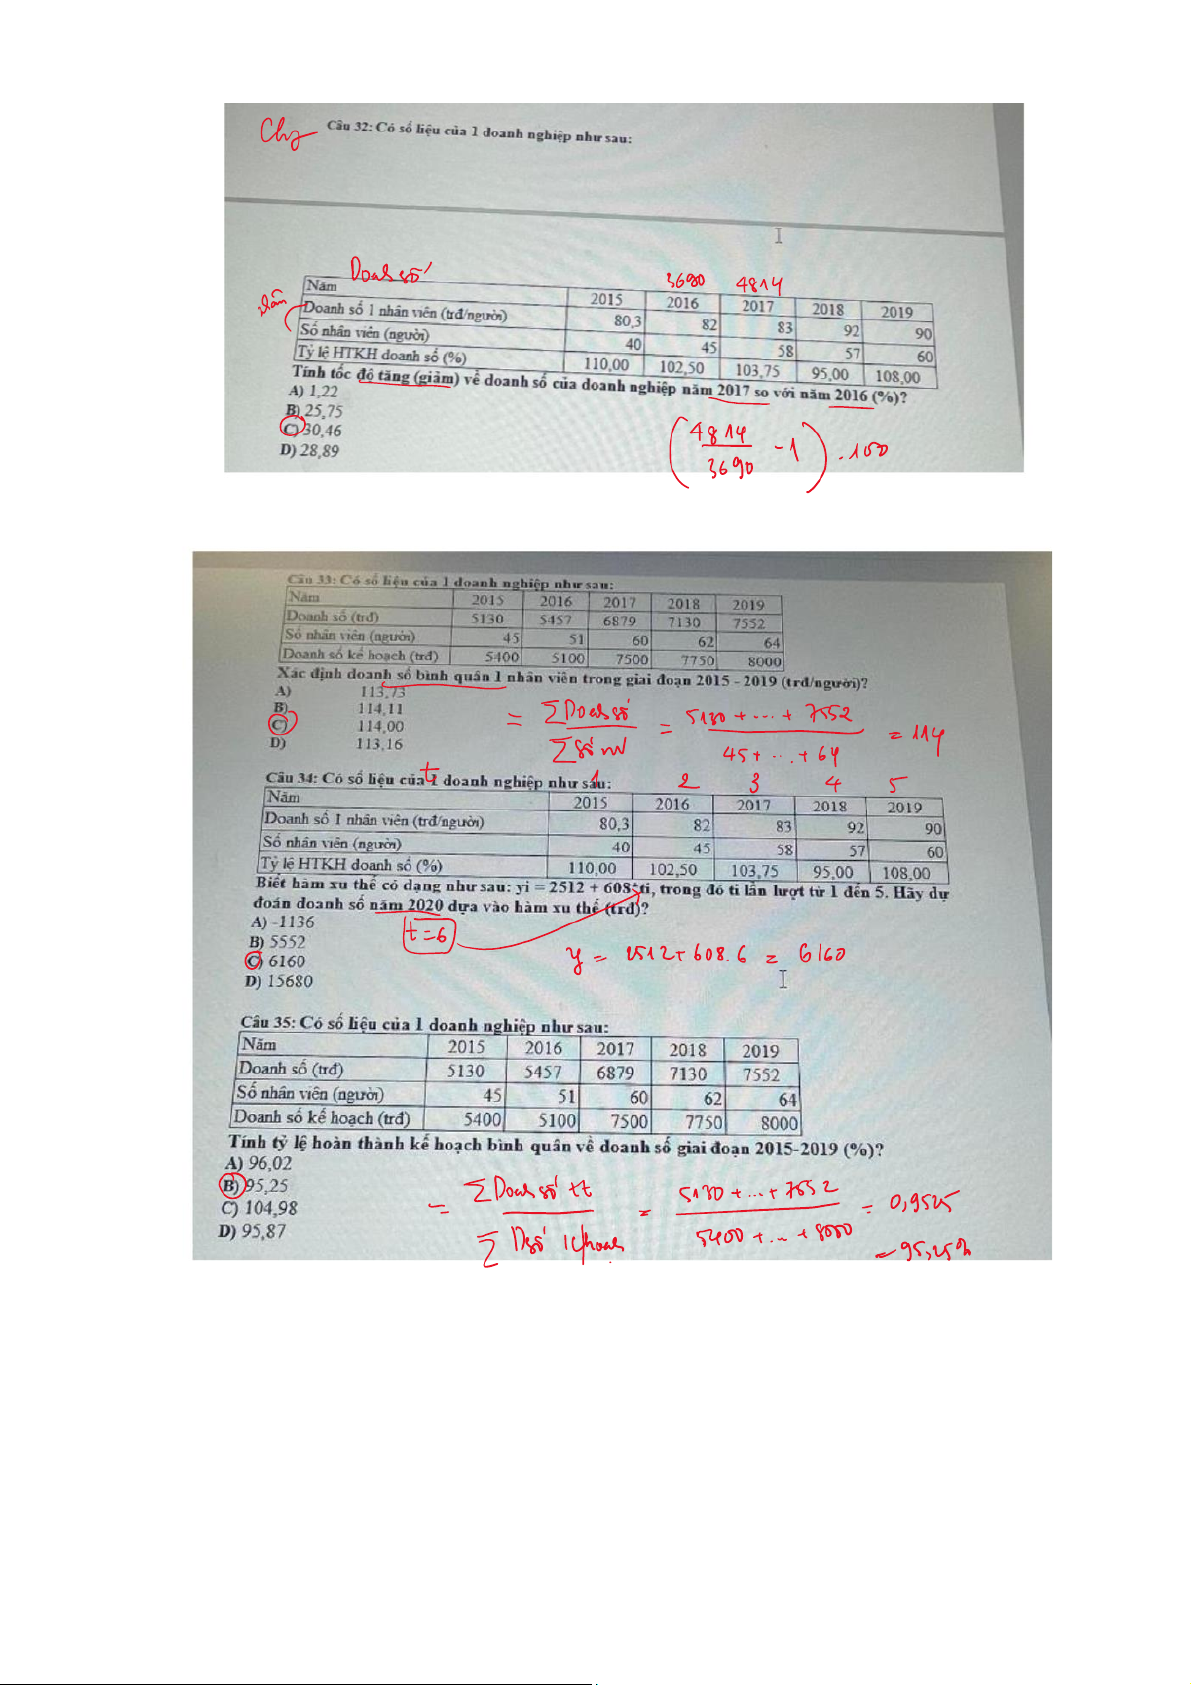 Câu 32: Có số liệu của 1 doanh nghiệp như sau:
Doanh số
3690 4814
Năm 2015 2016 2017 2018 2019
Doanh số 1 nhân viên (trđ/người) 80,3 82 83 92 90
Số nhân viên (người) 40 45 58 57 60
Tỷ lệ HTKH doanh số (%) 110,00 102,50 103,75 95,00 108,00
Tính tốc độ tăng (giảm) về doanh số của doanh nghiệp năm 2017 so với năm 2016 (%)?
A) 1,22
B) 25,75
C) 30,46
D) 28,89
(4814/3690 - 1) . 100
Câu 33: Có số liệu của 1 doanh nghiệp như sau:
Năm 2015 2016 2017 2018 2019
Doanh số (trđ) 5130 5457 6879 7130 7552
Số nhân viên (người) 45 51 60 62 64
Doanh số kế hoạch (trđ) 5400 5100 7500 7750 8000
Xác định doanh số bình quân 1 nhân viên trong giai đoạn 2015 - 2019 (trđ/người)?
A) 113,73
B) 114,11
C) 114,00
D) 113,16
= ΣDoanh số / ΣSố nv = 5130 + ... + 7552 / 45 + ... + 64 = 114
Câu 34: Có số liệu của 1 doanh nghiệp như sau:
t 1 2 3 4 5
Năm 2015 2016 2017 2018 2019
Doanh số 1 nhân viên (trđ/người) 80,3 82 83 92 90
Số nhân viên (người) 40 45 58 57 60
Tỷ lệ HTKH doanh số (%) 110,00 102,50 103,75 95,00 108,00
Biết hàm xu thế có dạng như sau: yi = 2512 + 608*ti, trong đó ti lần lượt từ 1 đến 5. Hãy dự
đoán doanh số năm 2020 dựa vào hàm xu thế (trđ)?
A) -1136
B) 5552
C) 6160
D) 15680
t = 6
y = 2512 + 608.6 = 6160
Câu 35: Có số liệu của 1 doanh nghiệp như sau:
Năm 2015 2016 2017 2018 2019
Doanh số (trđ) 5130 5457 6879 7130 7552
Số nhân viên (người) 45 51 60 62 64
Doanh số kế hoạch (trđ) 5400 5100 7500 7750 8000
Tính tỷ lệ hoàn thành kế hoạch bình quân về doanh số giai đoạn 2015-2019 (%)?
A) 96,02
B) 95,25
C) 104,98
D) 95,87
= ΣDoanh số tt / ΣDsố k/hoạch = 5130 + ... + 7552 / 5400 + ... + 8000 = 0,9525
= 95,25%